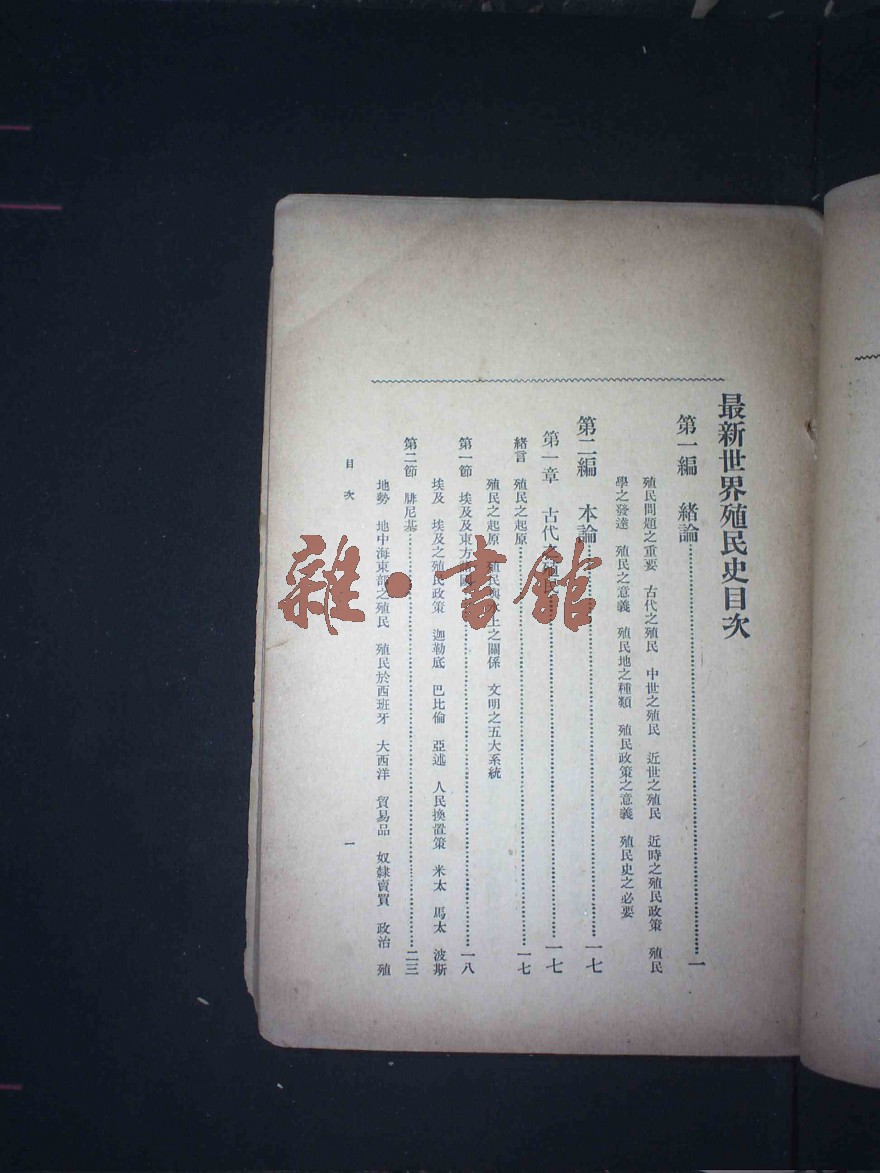 最新世界殖民史目次
第一編 緒論……一
殖民問題之重要 古代之殖民 中世之殖民 近世之殖民 近時之殖民政策 殖民
學之發達 殖民之意義 殖民地之種類 殖民政策之意義 殖民史之必要
第二編 本論……一七
第一章 古代之……一七
緒言 殖民之起原……一七
殖民之起原 殖民與水上之關係 文明之五大系統
第一節 埃及及東方……一八
埃及 埃及之殖民政策 迦勒底 巴比倫 亞述 人民換置策 米太 馬太 波斯
第二節 腓尼基……二三
地勢 地中海東部之殖民 殖民於西班牙 大西洋 貿易品 奴隸賣買 政治 殖
目次
一
雜·書館